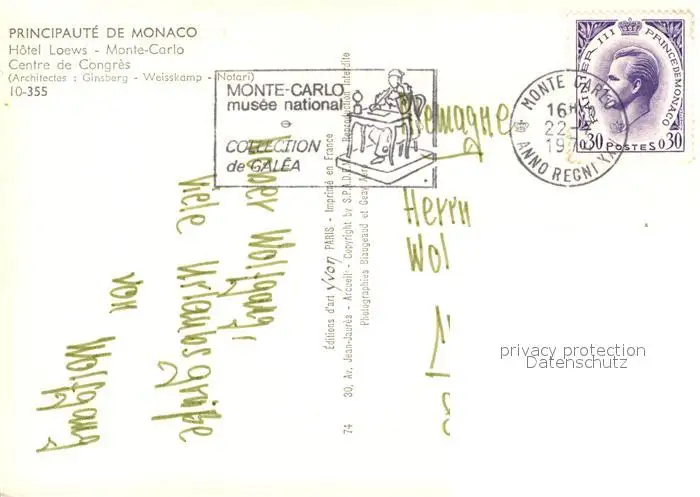 PRINCIPAUTÉ DE MONACO
Hôtel Loews - Monte-Carlo
Centre de Congrès
(Architectes : Ginsberg - Weisskamp - Notari)
10-355
MONTE-CARLO
musée national
COLLECTION
de GALÉA
MONTE CARLO
16H
22
197
ANNO REGNI XX
RAINIER III PRINCE DE MONACO
0,30 POSTES 0,30
Allemagne
Herrn
Wol
privacy protection
Datenschutz
Wolfgang,
viele Urlaubsgrüße
von
Wolfgang
Éditions d'art yvon PARIS - Imprimé en France
30, Av. Jean-Jaurès - Arcueil - Copyright by S.P.A.D.E.M. Reproduction interdite
Photographies Blaugeaud et Geay
74